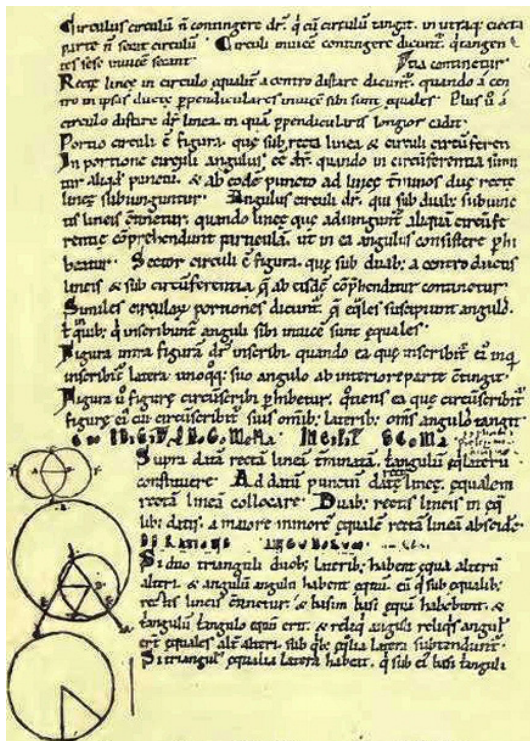 Circulus circulū ñ contingere dr̄. q̇ cū circulū tangit. in utraq; eiecta
parte ñ secat circulū · Circuli inuicē contingere dicunt̄. q̇ tangen
tes sese inuicē secant · tia continetur
Rectę lineę in circulo equalit̄ a centro distare dicunt̄. quando a cen
tro in ipsas ductę ꝑpendiculares inuicē sibi sunt equales · Plus ū a
circulo distare dr̄ linea. in quā ꝑpendicularis longior cadit ·
Portio circuli ē figura. quę sub recta linea & circuli circūferen
In portione circuli angulus eē dr̄. quando in circūferentia sumi
tur aliqd̄ punctū. & ab eodē puncto ad lineę t̄minos duę rectę
lineę subiunguntur · Angulus circuli dr̄. qui sub duab; subiunc
tis lineis c̄tinetur. quando lineę quę adiungunt̄ aliquā circūfe
rentię cōprehendunt particulā. ut in ea angulus consistere ꝑhi
beatur · Sector circuli ē figura. quę sub duab; a centro ductis
lineis & sub circūferentia q̄ ab eisdē cōp̄henditur continetur
Similes circuloꝝ portiones dicunt̄. q̄ eq̄les suscipiunt angulos.
t̄ in quib; q̇ inscribunt̄ anguli sibi inuicē sunt equales ·
Figura intra figurā dr̄ inscribi. quando ea que inscribit̄ ei in q̄
inscribit̄ latera unoq̇q; suo angulo ab interiore parte c̄tingit ·
Figura ū figurę circūscribi ꝑhibetur. quotiens ea quę circūscribit̄
figurę ei cui circūscribit̄ suis omib; laterib; omis angulos tangit
Supra datā rectā lineā t̄minatā. t̄angulum eq̄laterū
constituere · Ad datum punctum datę recte lineę. equalem
rectā lineā collocare · Duab; rectis lineis in eq̄
lib; datis. a maiore minorē equalē rectā lineā abscide ·
Si duo trianguli duob; laterib; habent equa alterū
alteri. & angulū angulū habent equū eū q̇ sub equalib;
rectis lineis c̄tinetur. & basim basi equū habebunt. &
t̄angulū t̄angulo equū erit. & reliq̇ anguli reliq̇s anguł
er̄t equales alt̄ alteri. sub q̇b; eq̄lia latera subtendunt̄ ·
Si triangul; equalia latera habeit. q̇ sub ei basi t̄anguli